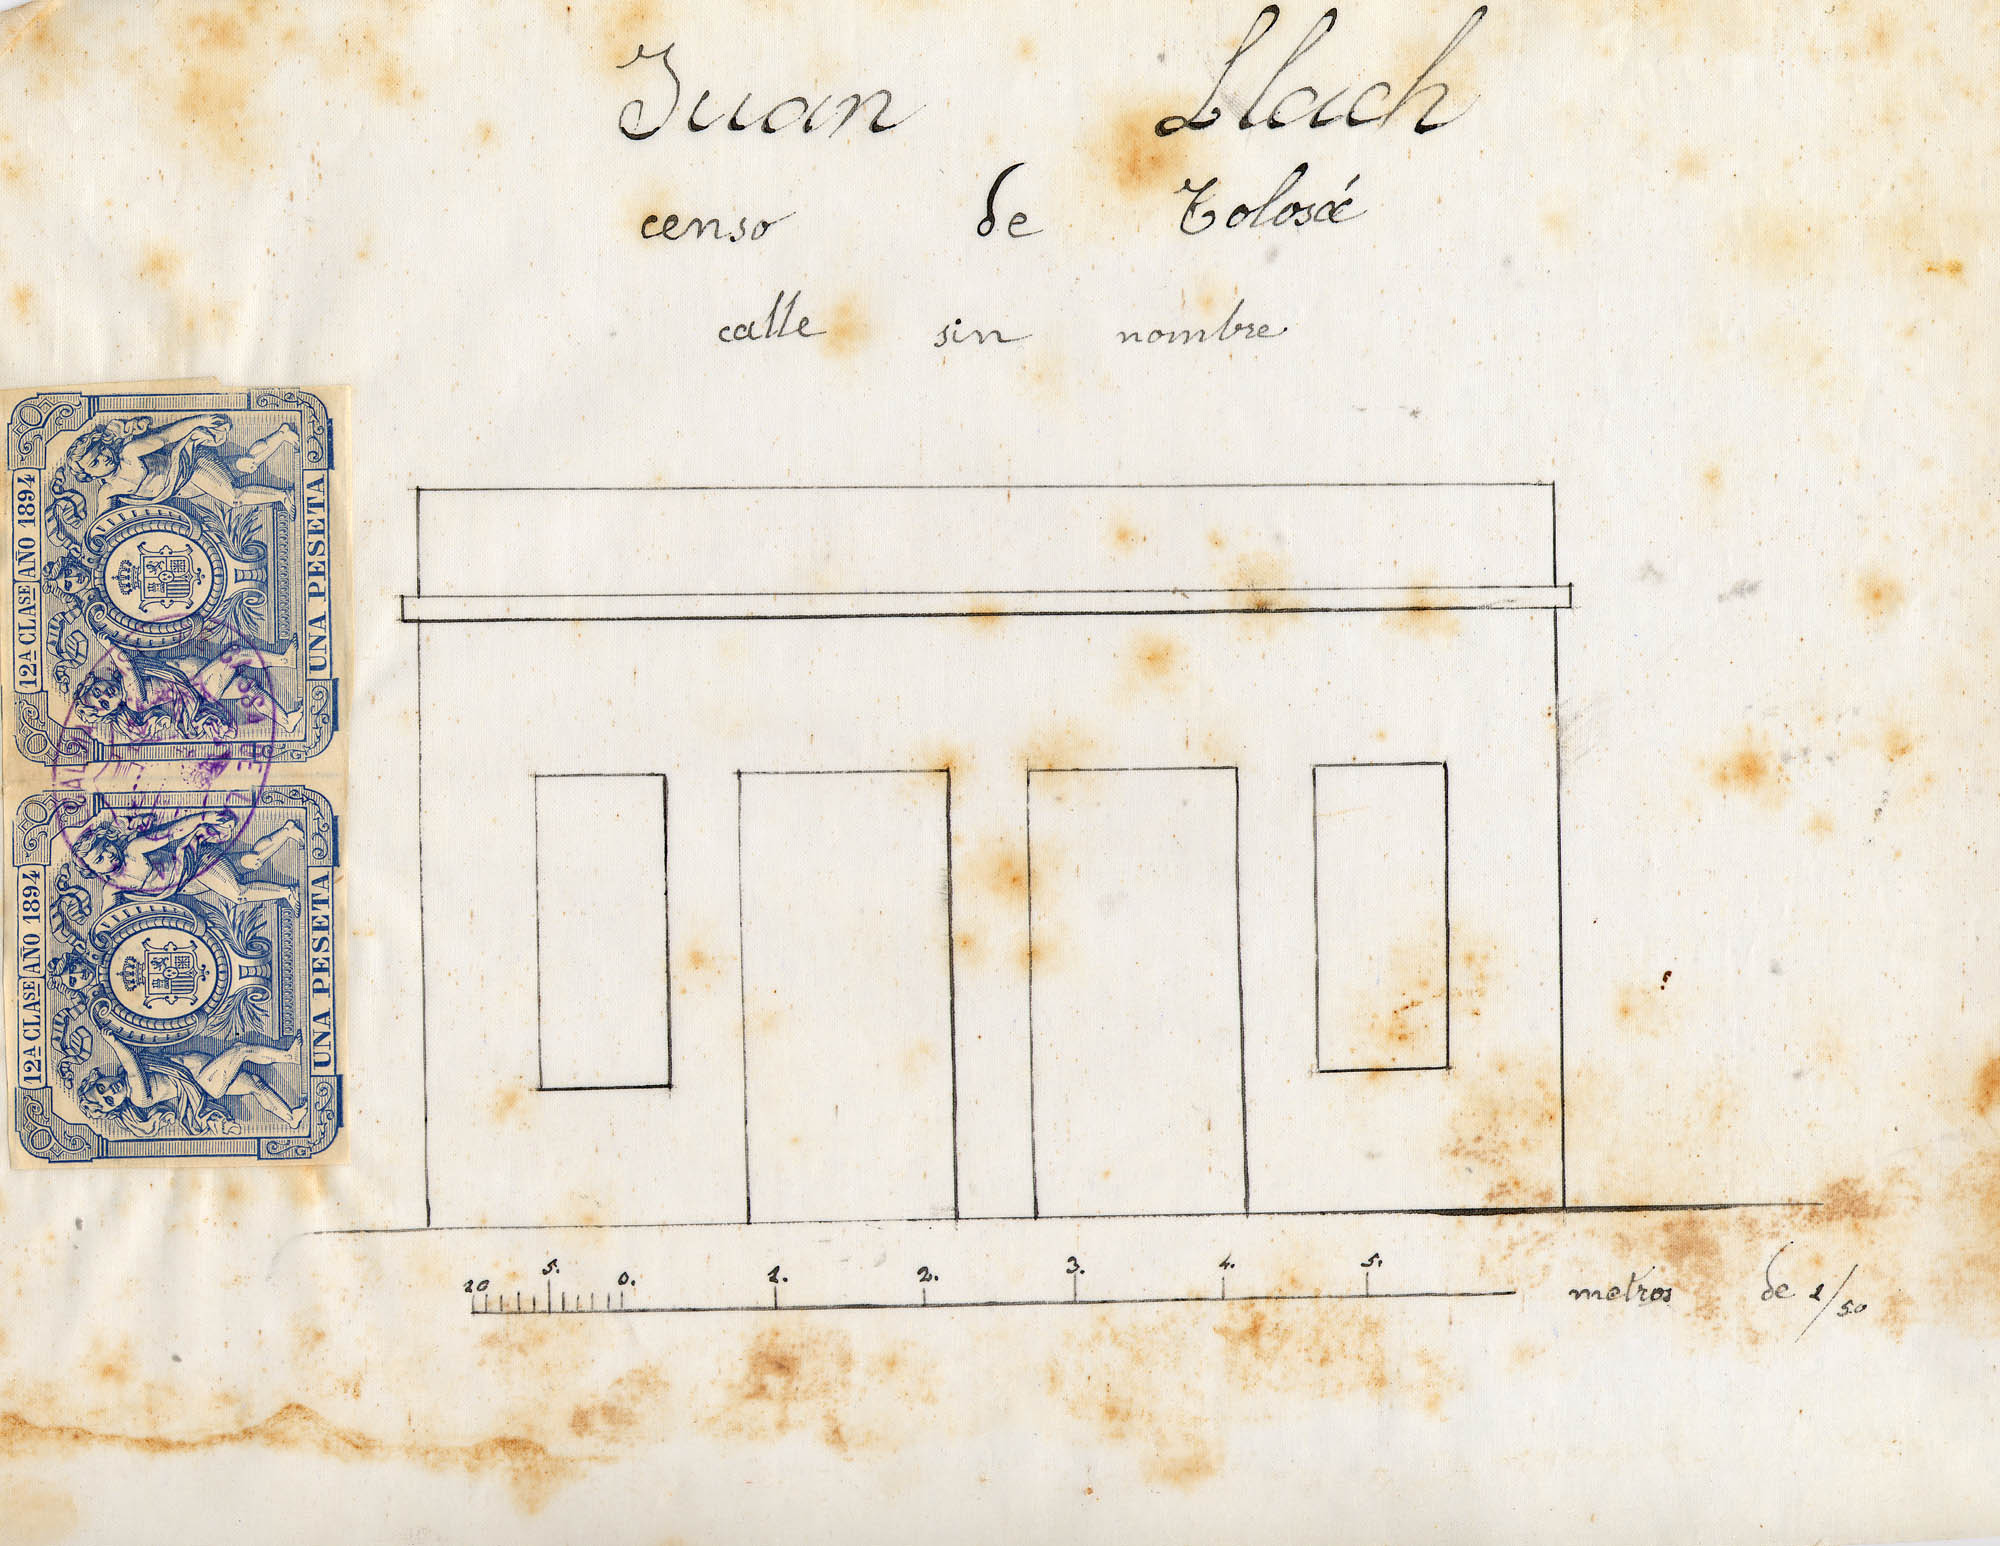 Juan Llach
censo de Tolosá
calle sin nombre
12A CLASE AÑO 1894
UNA PESETA
12A CLASE AÑO 1894
UNA PESETA
DE
10 5. 0. 1. 2. 3. 4. 5. metros de 1/50